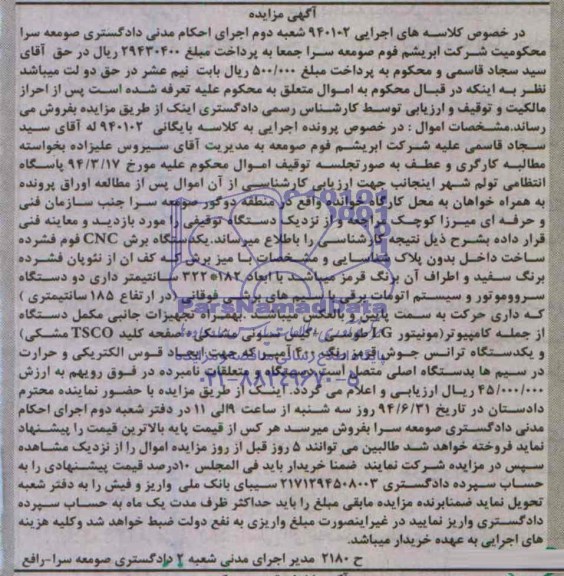 آگهی مزایده
در خصوص کلاسه های اجرایی ۹۴۰۱۰۲ شعبه دوم اجرای احکام مدنی دادگستری صومعه سرا
محکومیت شرکت ابریشم فوم صومعه سرا جمعا به پرداخت مبلغ ۲۹۴۳۰۴۰۰ ریال در حق آقای
سید سجاد قاسمی و محکوم به پرداخت مبلغ ۵۰۰/۰۰۰ ریال بابت نیم عشر در حق دولت میباشد
نظر به اینکه در قبال محکوم به اموال متعلق به محکوم علیه تعرفه شده است پس از احراز
مالکیت و توقیف و ارزیابی توسط کارشناس رسمی دادگستری اینک از طریق مزایده بفروش می
رساند.مشخصات اموال : در خصوص پرونده اجرایی به کلاسه بایگانی ۹۴۰۱۰۲ له آقای سید
سجاد قاسمی علیه شرکت ابریشم فوم صومعه به مدیریت آقای سیروس علیزاده بخواسته
مطالبه کارگری و عطف به صورتجلسه توقیف اموال محکوم علیه مورخ ۹۴/۳/۱۷ پاسگاه
انتظامی تولم شهر اینجانب جهت ارزیابی کارشناسی از آن اموال پس از مطالعه اوراق پرونده
به همراه خواهان به محل کارگاه خوانده واقع در منطقه دوگور صومعه سرا جنب سازمان فنی
و حرفه ای میرزا کوچک مراجعه و از نزدیک دستگاه توقیفی را مورد بازدید و معاینه فنی
قرار داده بشرح ذیل نتیجه کارشناسی را باطلاع میرساند.یکدستگاه برش CNC فوم فشرده
ساخت داخل بدون پلاک شناسایی و مشخصات با میز برش که کف ان از نئوپان فشرده
برنگ سفید و اطراف آن برنگ قرمز میباشد با ابعاد ۱۸۲*۳۲۲ سانتیمتر داری دو دستگاه
سرووموتور و سیستم اتومات برقی با سیم های برشی فوقانی (در ارتفاع ۱۸۵ سانتیمتری )
که داری حرکت به سمت پایین و بالعکس میباشد با بهمراه تجهیزات جانبی مکمل دستگاه
از جمله کامپیوتر(مونیتور LG طوسی + کیس صابونی مشکی + صفحه کلید TSCO مشکی)
و یکدستگاه ترانس جوش قرمز رنگ آمپر که جهت ایجاد قوس الکتریکی و حرارت
در سیم ها بدستگاه اصلی متصل است دستگاه و متعلقات نامبرده در فوق رویهم به ارزش
۴۵/۰۰۰/۰۰۰ ریال ارزیابی و اعلام می گردد. اینک از طریق مزایده با حضور نماینده محترم
دادستان در تاریخ ۹۴/۶/۳۱ روز سه شنبه از ساعت ۹الی ۱۱ در دفتر شعبه دوم اجرای احکام
مدنی دادگستری صومعه سرا بفروش میرسد هر کس از قیمت پایه بالاترین قیمت را پیشنهاد
نماید فروخته خواهد شد طالبین می توانند ۵ روز قبل از روز مزایده اموال را از نزدیک مشاهده
سپس در مزایده شرکت نمایند ضمنا خریدار باید فی المجلس ۱۰درصد قیمت پیشنهادی را به
حساب سپرده دادگستری ۲۱۷۱۲۹۴۵۰۸۰۰۳ سیبای بانک ملی واریز و فیش را به دفتر شعبه
تحویل نماید ضمنابرنده مزایده مابقی مبلغ را باید حداکثر ظرف مدت یک ماه به حساب سپرده
دادگستری واریز نمایید در غیراینصورت مبلغ واریزی به نفع دولت ضبط خواهد شد وکلیه هزینه
های اجرایی به عهده خریدار میباشد.
ح ۲۱۸۰ مدیر اجرای مدنی شعبه ۲ دادگستری صومعه سرا-رافع
ParsNamadData
۰۲۱-۸۸۳۴۹۶۷۰-۵